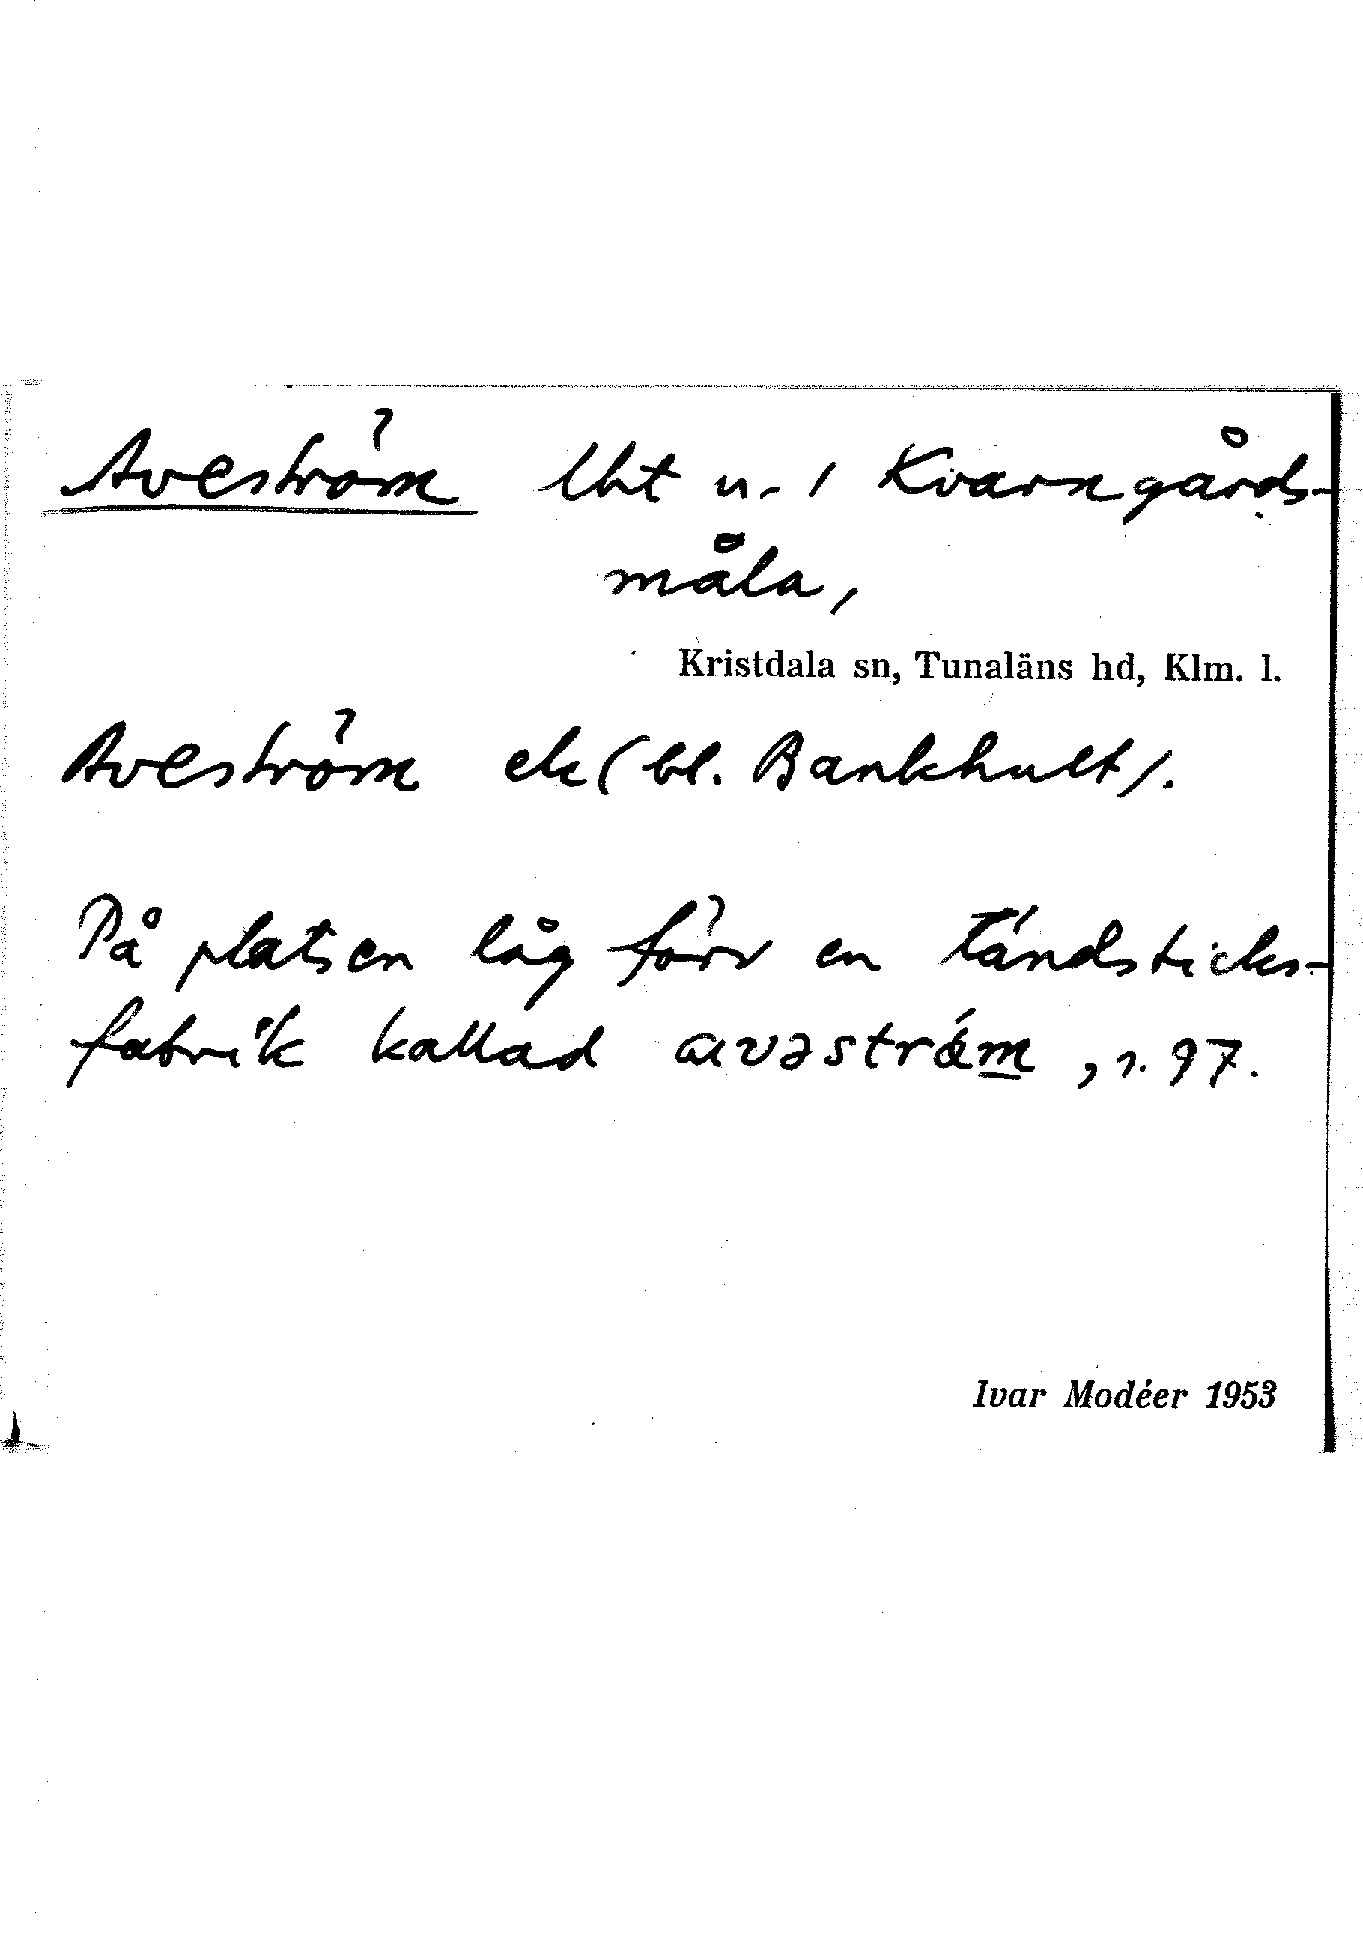 Aveström lht u. / Kvarngårds-
måla,
Kristdala sn, Tunaläns hd, Klm. l.
Aveström ek (bl. Bankhult).
På platsen låg förr en tändsticks-
fabrik kallad avəstrǿm, r. 97.
Ivar Modéer 1953